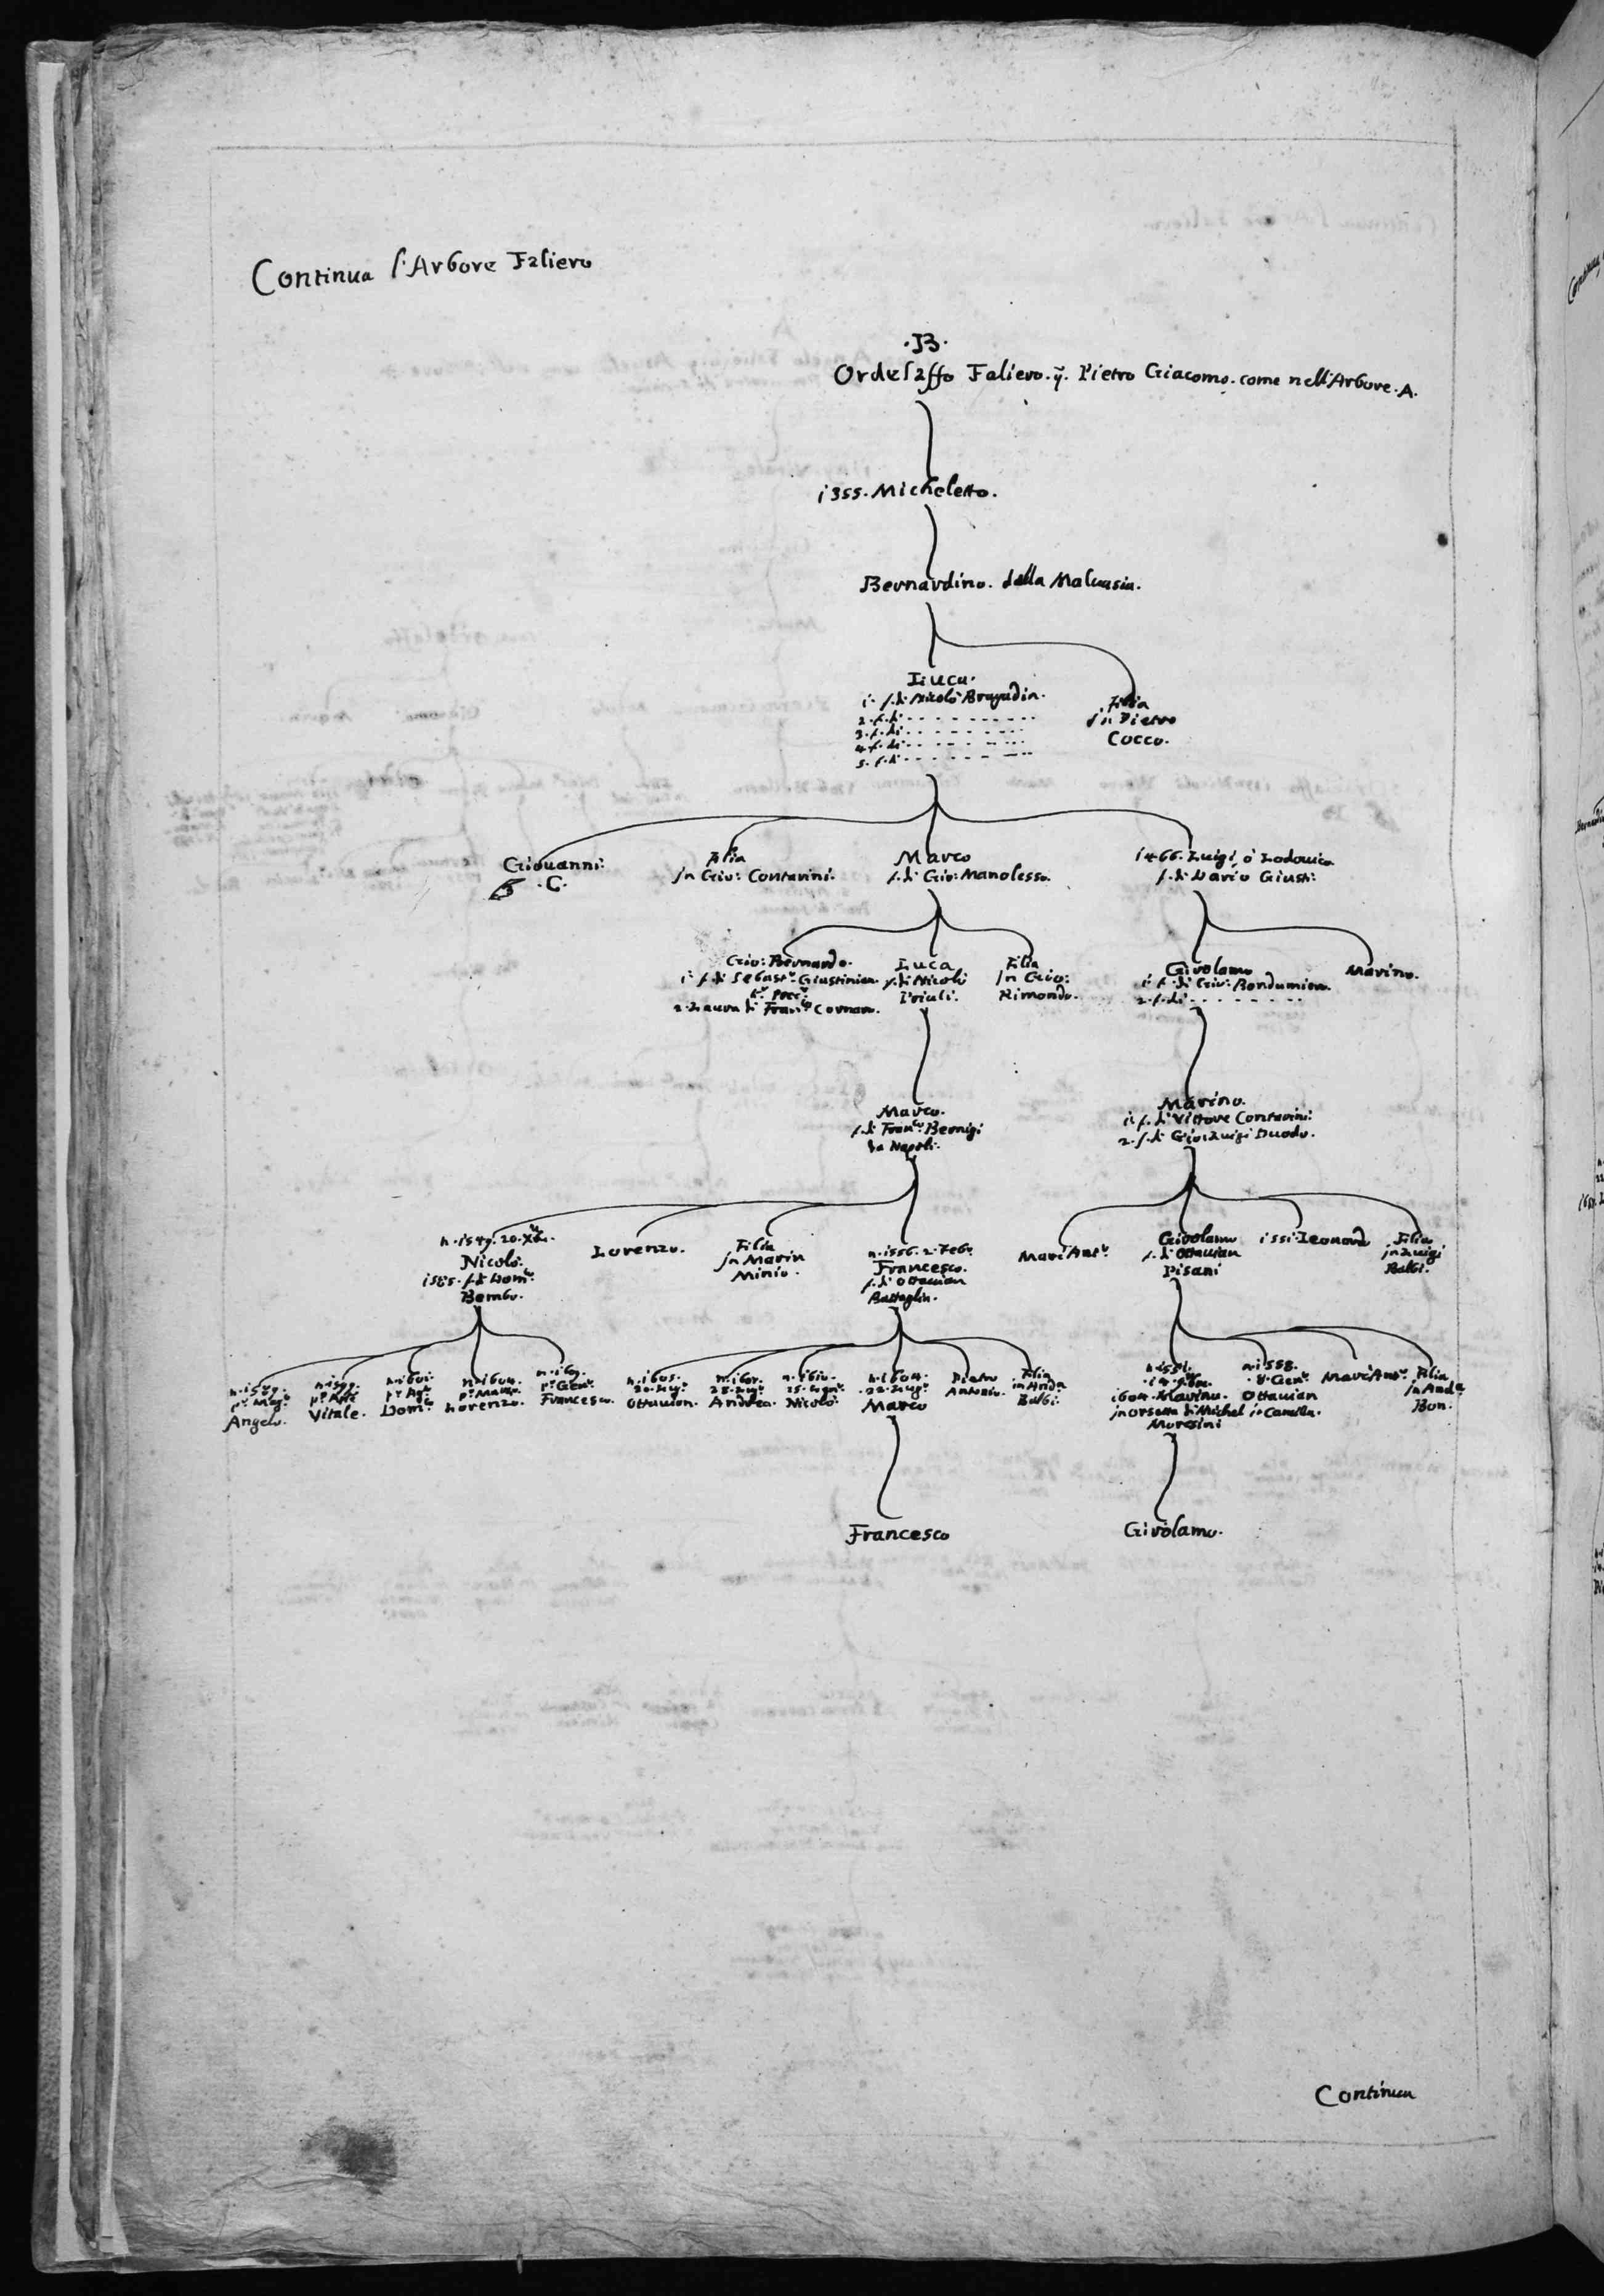 Continua l'Arbore Faliero
.B.
Ordelaffo Faliero. q̃. Pietro Giacomo. come nell'Arbore. A.
1355. Micheletto.
Bernardino. della Malvasia.
Luca.
1. f. di Nicolò Bragadin.
2. f. di . . . . . . . . . .
3. f. di . . . . . . . . .
4. f. di . . . . . . . . .
5. f. di . . . . . . . . .
Filia
in Pietro
Cocco.
Giovanni:
.C.
Filia
in Gio: Contarini.
Marco
f. di Gio: Manolesso.
1466. Luigi, ò Lodovico
f. di Dario Giusti:
Gio: Bernardo.
1. f. di Sebast.º Giustinian
K.r Proc.r
2. Laura di Fran.co Cornaro.
Luca
f. di Nicolò
Priuli.
Filia
in Gio:
Rimondo.
Girolamo
1. f. di Gio: Bondumier.
2. f. di . . . . . . . .
Marino.
Marco.
f. di Fran.co
da Napoli.
Marino.
1. f. di Vittore Contarini:
2. f. di Gio: Luigi Duodo.
n. 1549. 20. Xbr.
Nicolò.
1585. f. di Dom.co
Bembo.
Lorenzo.
Filia
in Marin
Minio.
n. 1556. 2. Feb.º
Francesco.
f. di Ottavian
Battaglia.
Marc'Ant.º
Girolamo
f. di Ottavian
Pisani
1551. Leonardo
Filia
in Luigi
Balbi.
p.º Mag.º
Angelo.
n. 1599.
Vitale.
n. 1601.
Dom.co
n. 1604.
p.º Marzo.
Lorenzo.
p.º Gen.º
Francesco.
n. 1605.
Ottavian.
Andrea.
n. 1610.
Nicolò.
n. 1604.
Marco
Pietro
Antonio.
Filia
in And.a
Balbi.
1604. Marino.
in Orsetta di Michel
Moresini
n. 1558.
8. Gen.º
Ottavian
in Camilla.
Marc'Ant.º
Filia
in And.a
Bon.
Francesco
Girolamo.
Continua